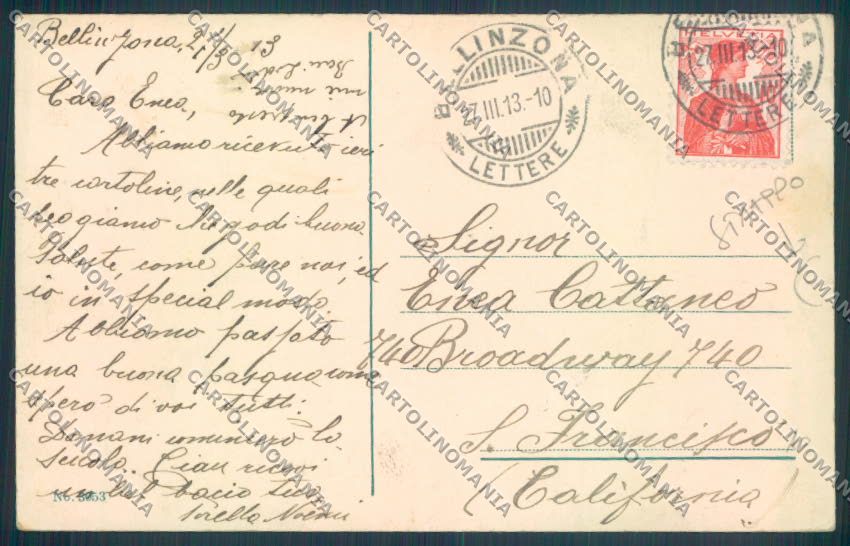 Bellinzona, 27/3 13
Cara Enea,
Abbiamo ricevuto ieri
tre cartoline, nelle quali
leggiamo che godi buona
salute, come pure noi, ed
io in special modo.
Abbiamo passato
una buona pasqua come
spero di voi tutti.
Domani comincerò la
scuola. Ciau ricevi
bacio tua
sorella Noemi
No. 3953
BELLINZONA
27.III.13.-10
LETTERE
HELVETIA
BELLINZONA
27.III.13.-10
LETTERE
STRAPPO
Signor
Enea Cattaneo
740 Broadway 740
S. Francisco
(California)
CARTOLINOMANIA